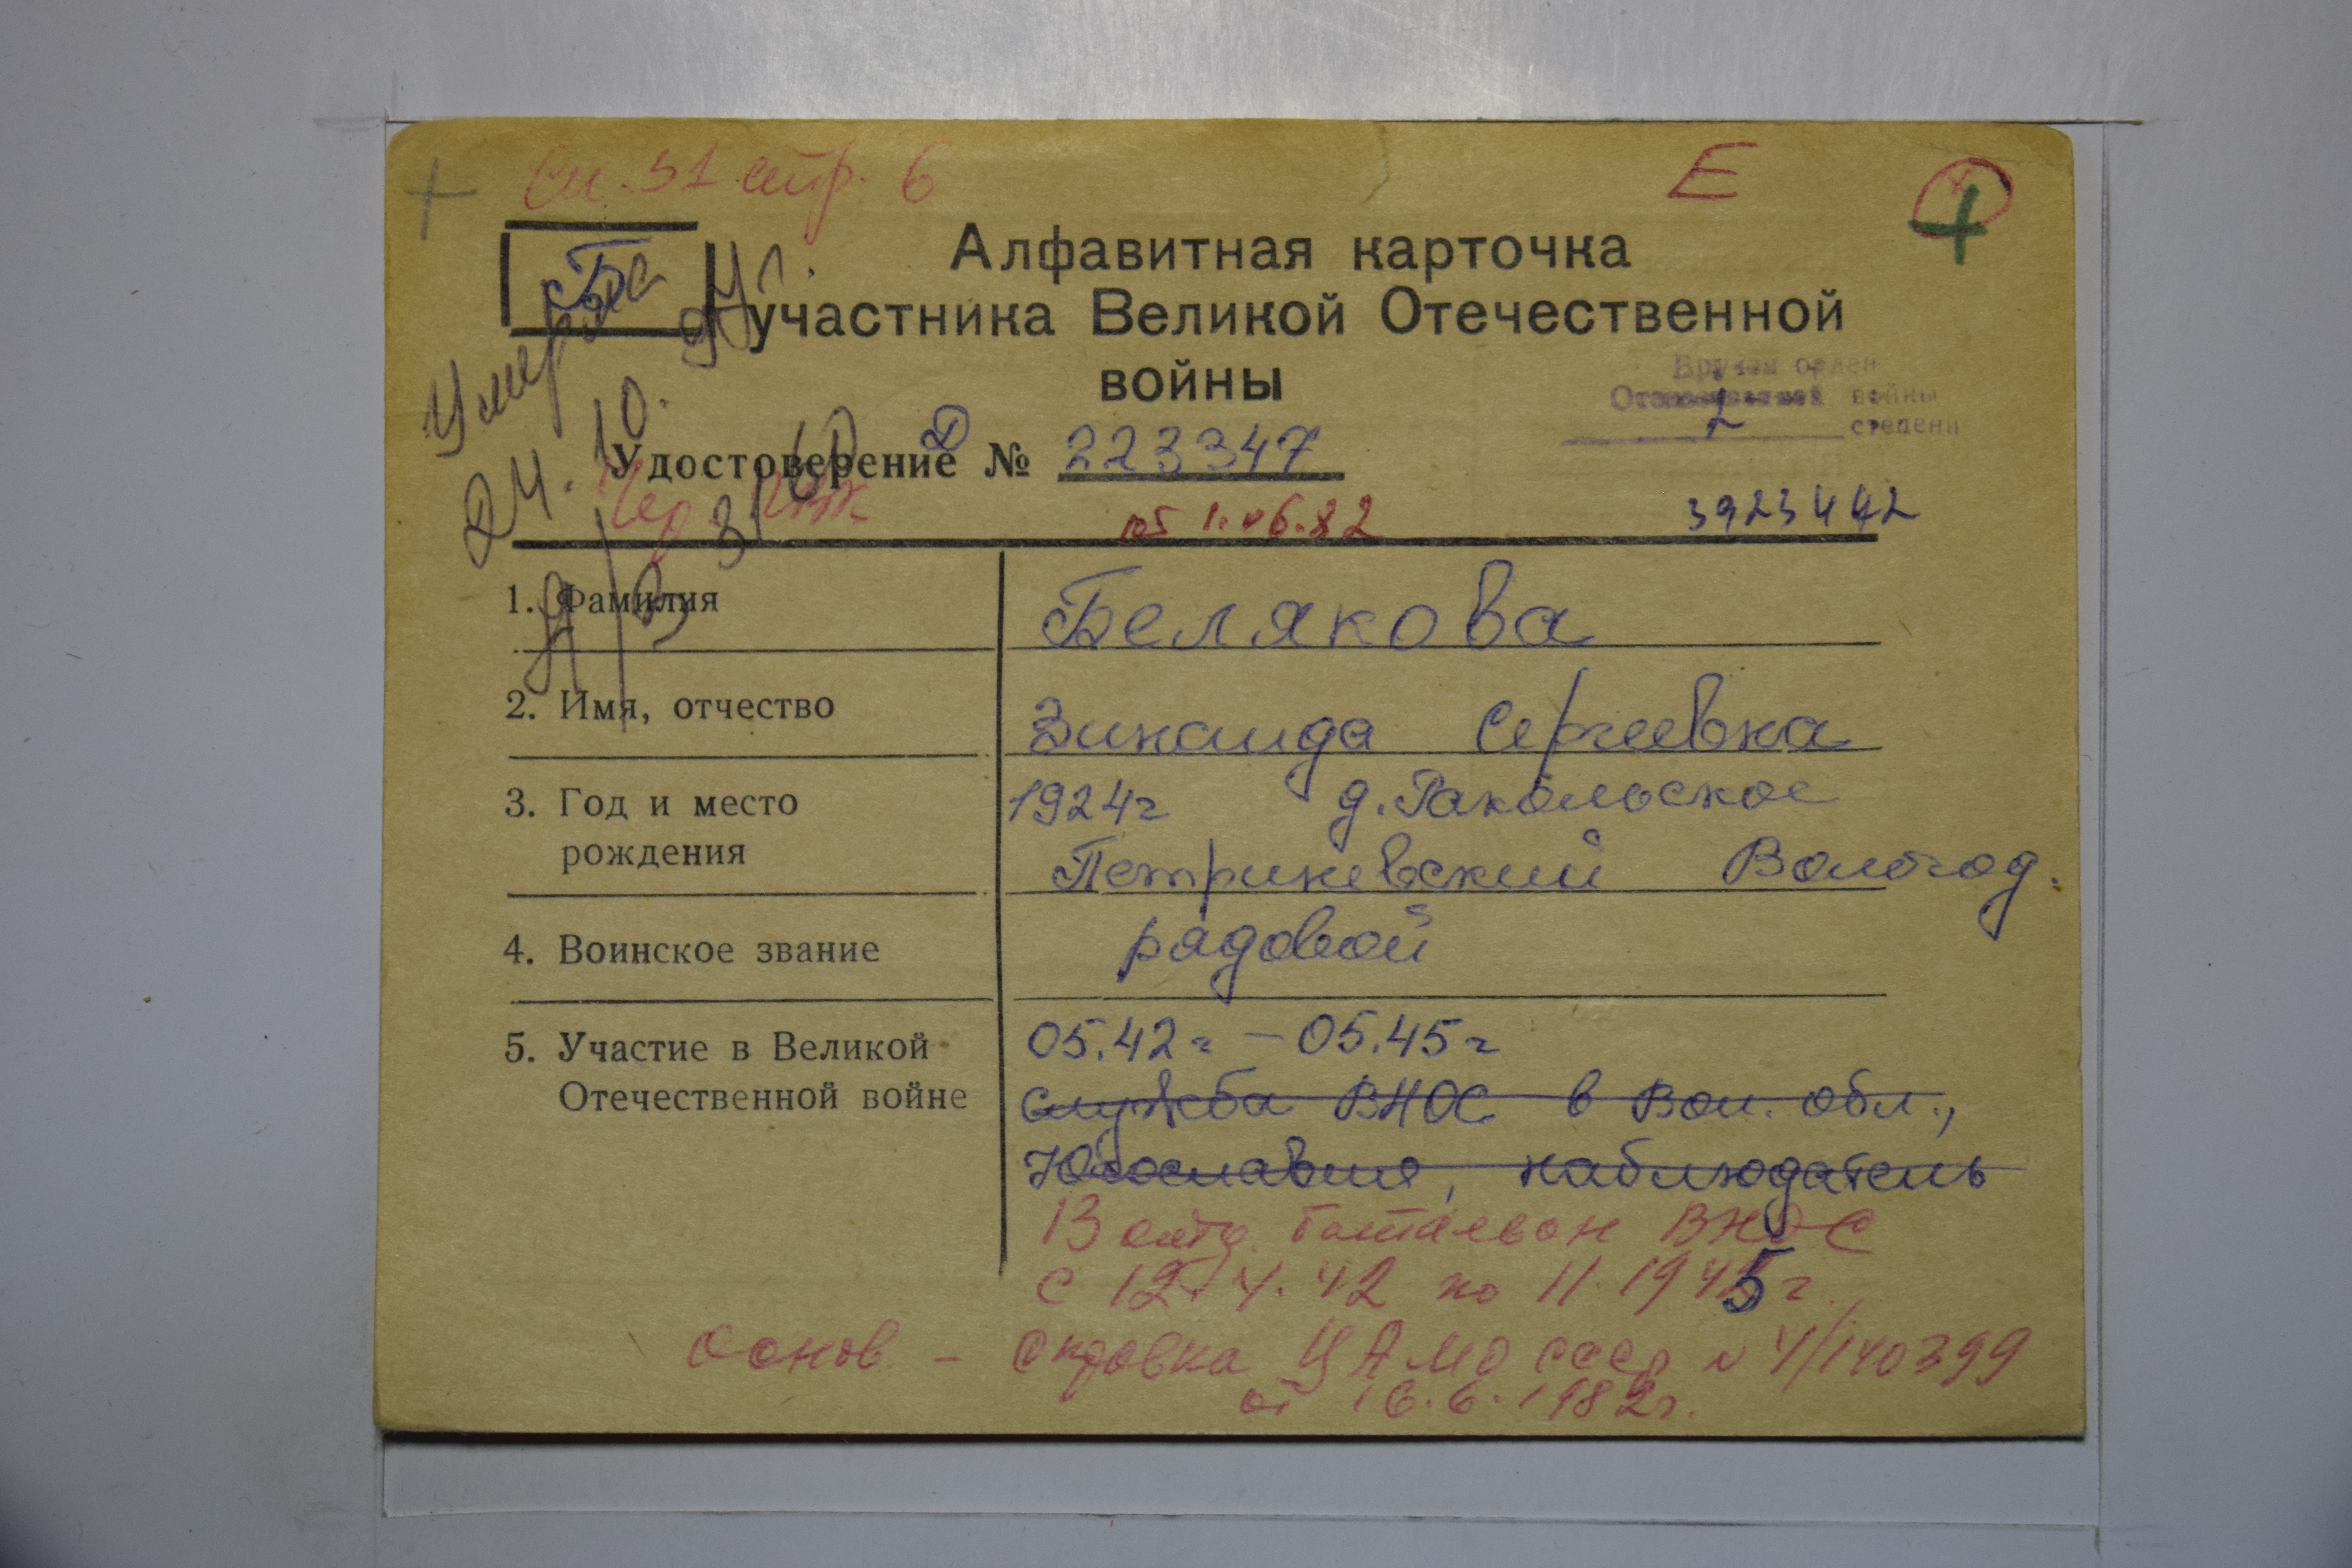 сп. 51 стр. 6 Е
Бе
Умерла
24.10. 94г.
Алфавитная карточка
участника Великой Отечественной
войны
Вручен орден
Отечественной войны
2 степени
Удостоверение Д № 223347
от 1.06.82 3923442
1. Фамилия Белякова
2. Имя, отчество Зинаида Сергеевна
3. Год и место 1924г д. Ракольское
рождения Петриневский Вологод.
4. Воинское звание рядовой
5. Участие в Великой 05.42г – 05.45г
Отечественной войне служба ВНОС в Вол. обл.,
Югославия, наблюдатель
13 отд. батальон ВНОС
с 12.4.42 по 11.1945г
Основ – справка ЦАМО СССР № 4/140399
от 16.6.1982г.